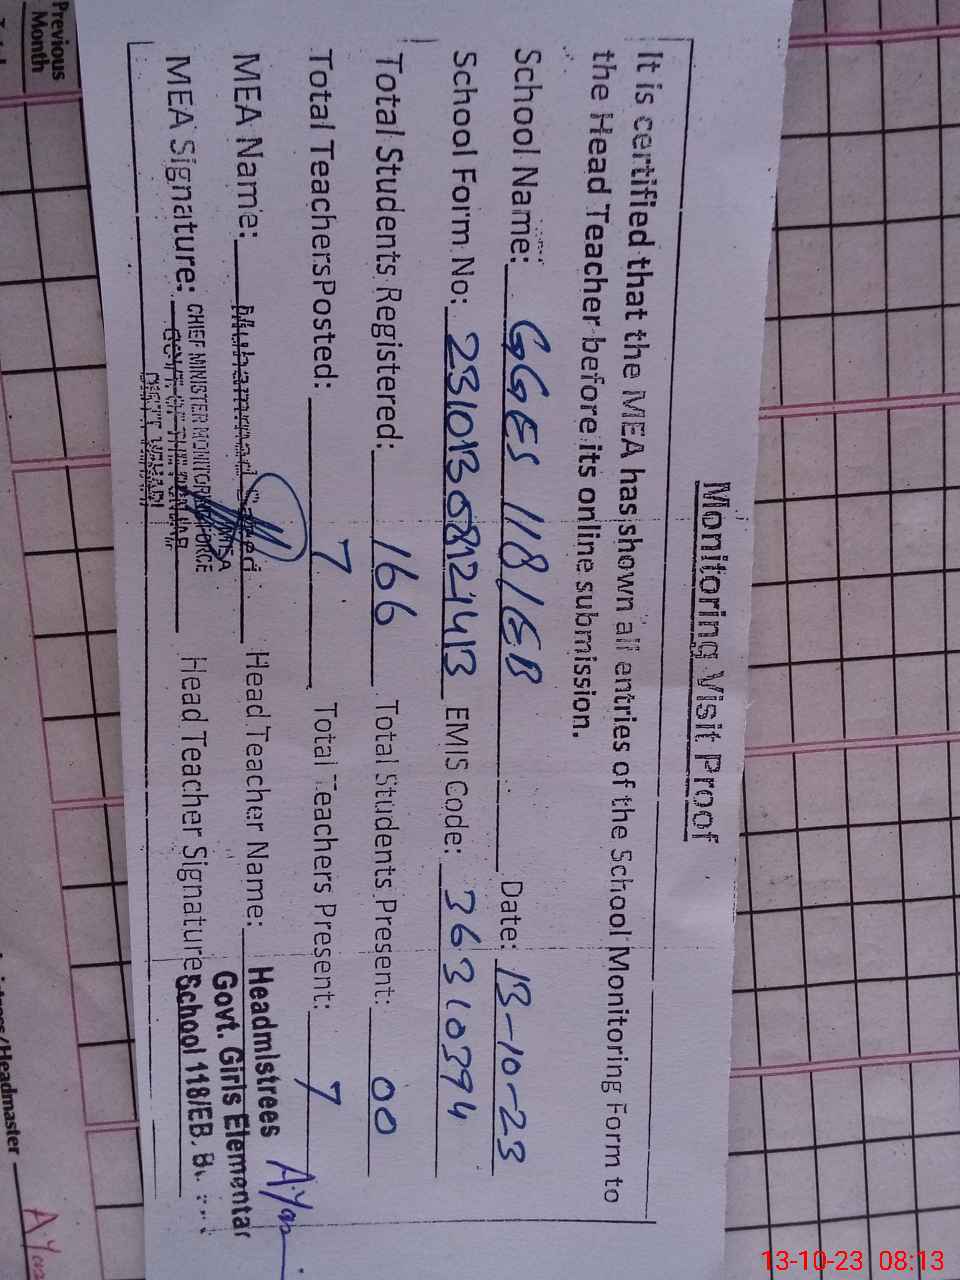 Monitoring Visit Proof
It is certified that the MEA has shown all entries of the School Monitoring Form to
the Head Teacher before its online submission.
School Name: GGES 118/EB Date: 13-10-23
School Form No: EMIS Code: 36310394
Total Students Registered: 166 Total Students Present: 00
Total Teachers Posted: 7 Total Teachers Present: 7
MEA Name: Muhammad Saeed Head Teacher Name:
MEA
MEA Signature: Head Teacher Signature:
CHIEF MINISTER MONITORING FORCE
GOVT. OF THE PUNJAB
DISTT. VEHARI
Headmistrees
Govt. Girls Elementar
School 118/EB.
A.Yas
Previous
Month
/Headmaster
A.Yas
13-10-23 08:13